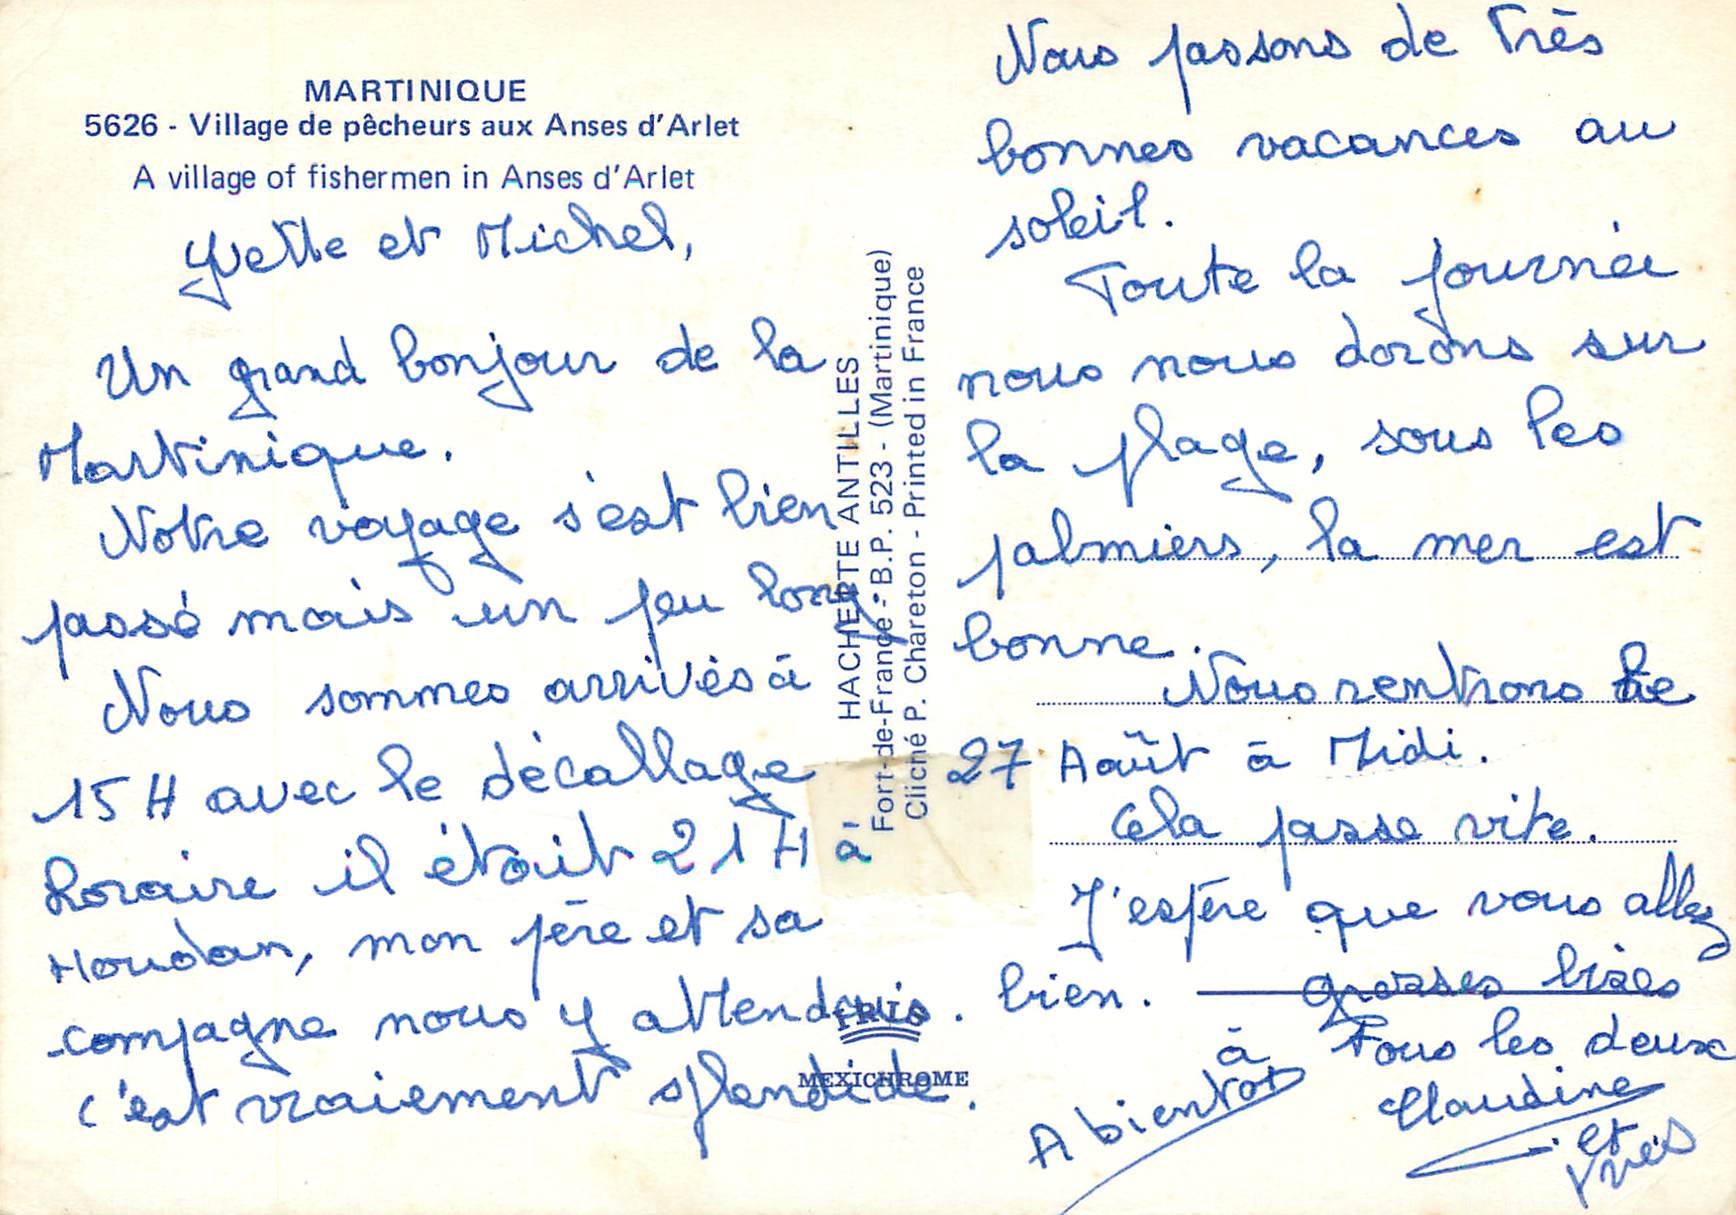 MARTINIQUE
5626 - Village de pêcheurs aux Anses d'Arlet
A village of fishermen in Anses d'Arlet
Yvette et Michel,
Un grand bonjour de la
Martinique.
Notre voyage s'est bien
passé mais un peu long.
Nous sommes arrivés à
15 H avec le décallage
horaire il était 21 H à
Houdan, mon père et sa
compagne nous y attendais.
c'est vraiement splendide.
HACHETTE ANTILLES
Fort-de-France - B.P. 523 - (Martinique)
Cliché P. Chareton - Printed in France
IRIS
MEXICHROME
Nous passons de très
bonnes vacances au
soleil.
Toute la journée
nous nous dorons sur
la plage, sous les
palmiers, la mer est
bonne.
Nous rentrons le
27 Août à Midi.
Cela passe vite.
J'espère que vous allez
bien. grosses bises
à Tous les deux
A bientot
Claudine
et
Yves